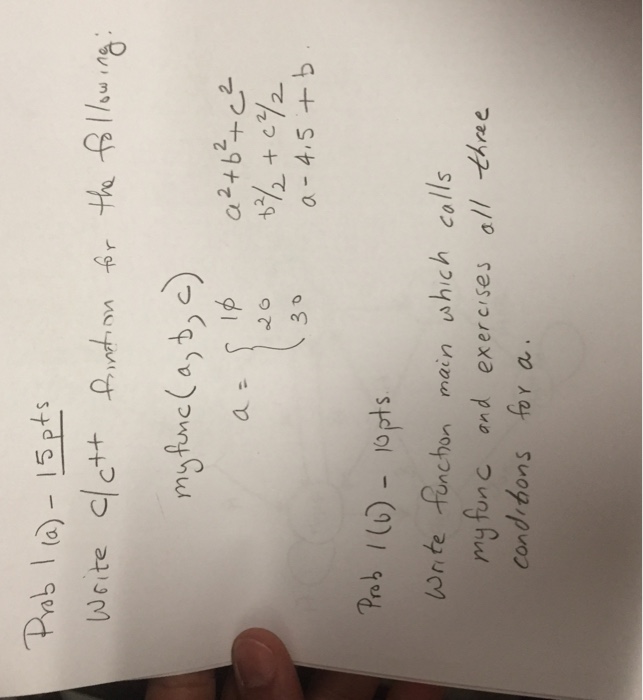 Prob 1 (a) - 15pts
Write c/c++ function for the following:
myfunc(a, b, c)
a = { 10 a²+b²+c²
20 b²/2 + c²/2
30 a-4.5 + b.
Prob 1(b) - 10pts.
Write function main which calls
myfunc and exercises all three
conditions for a.